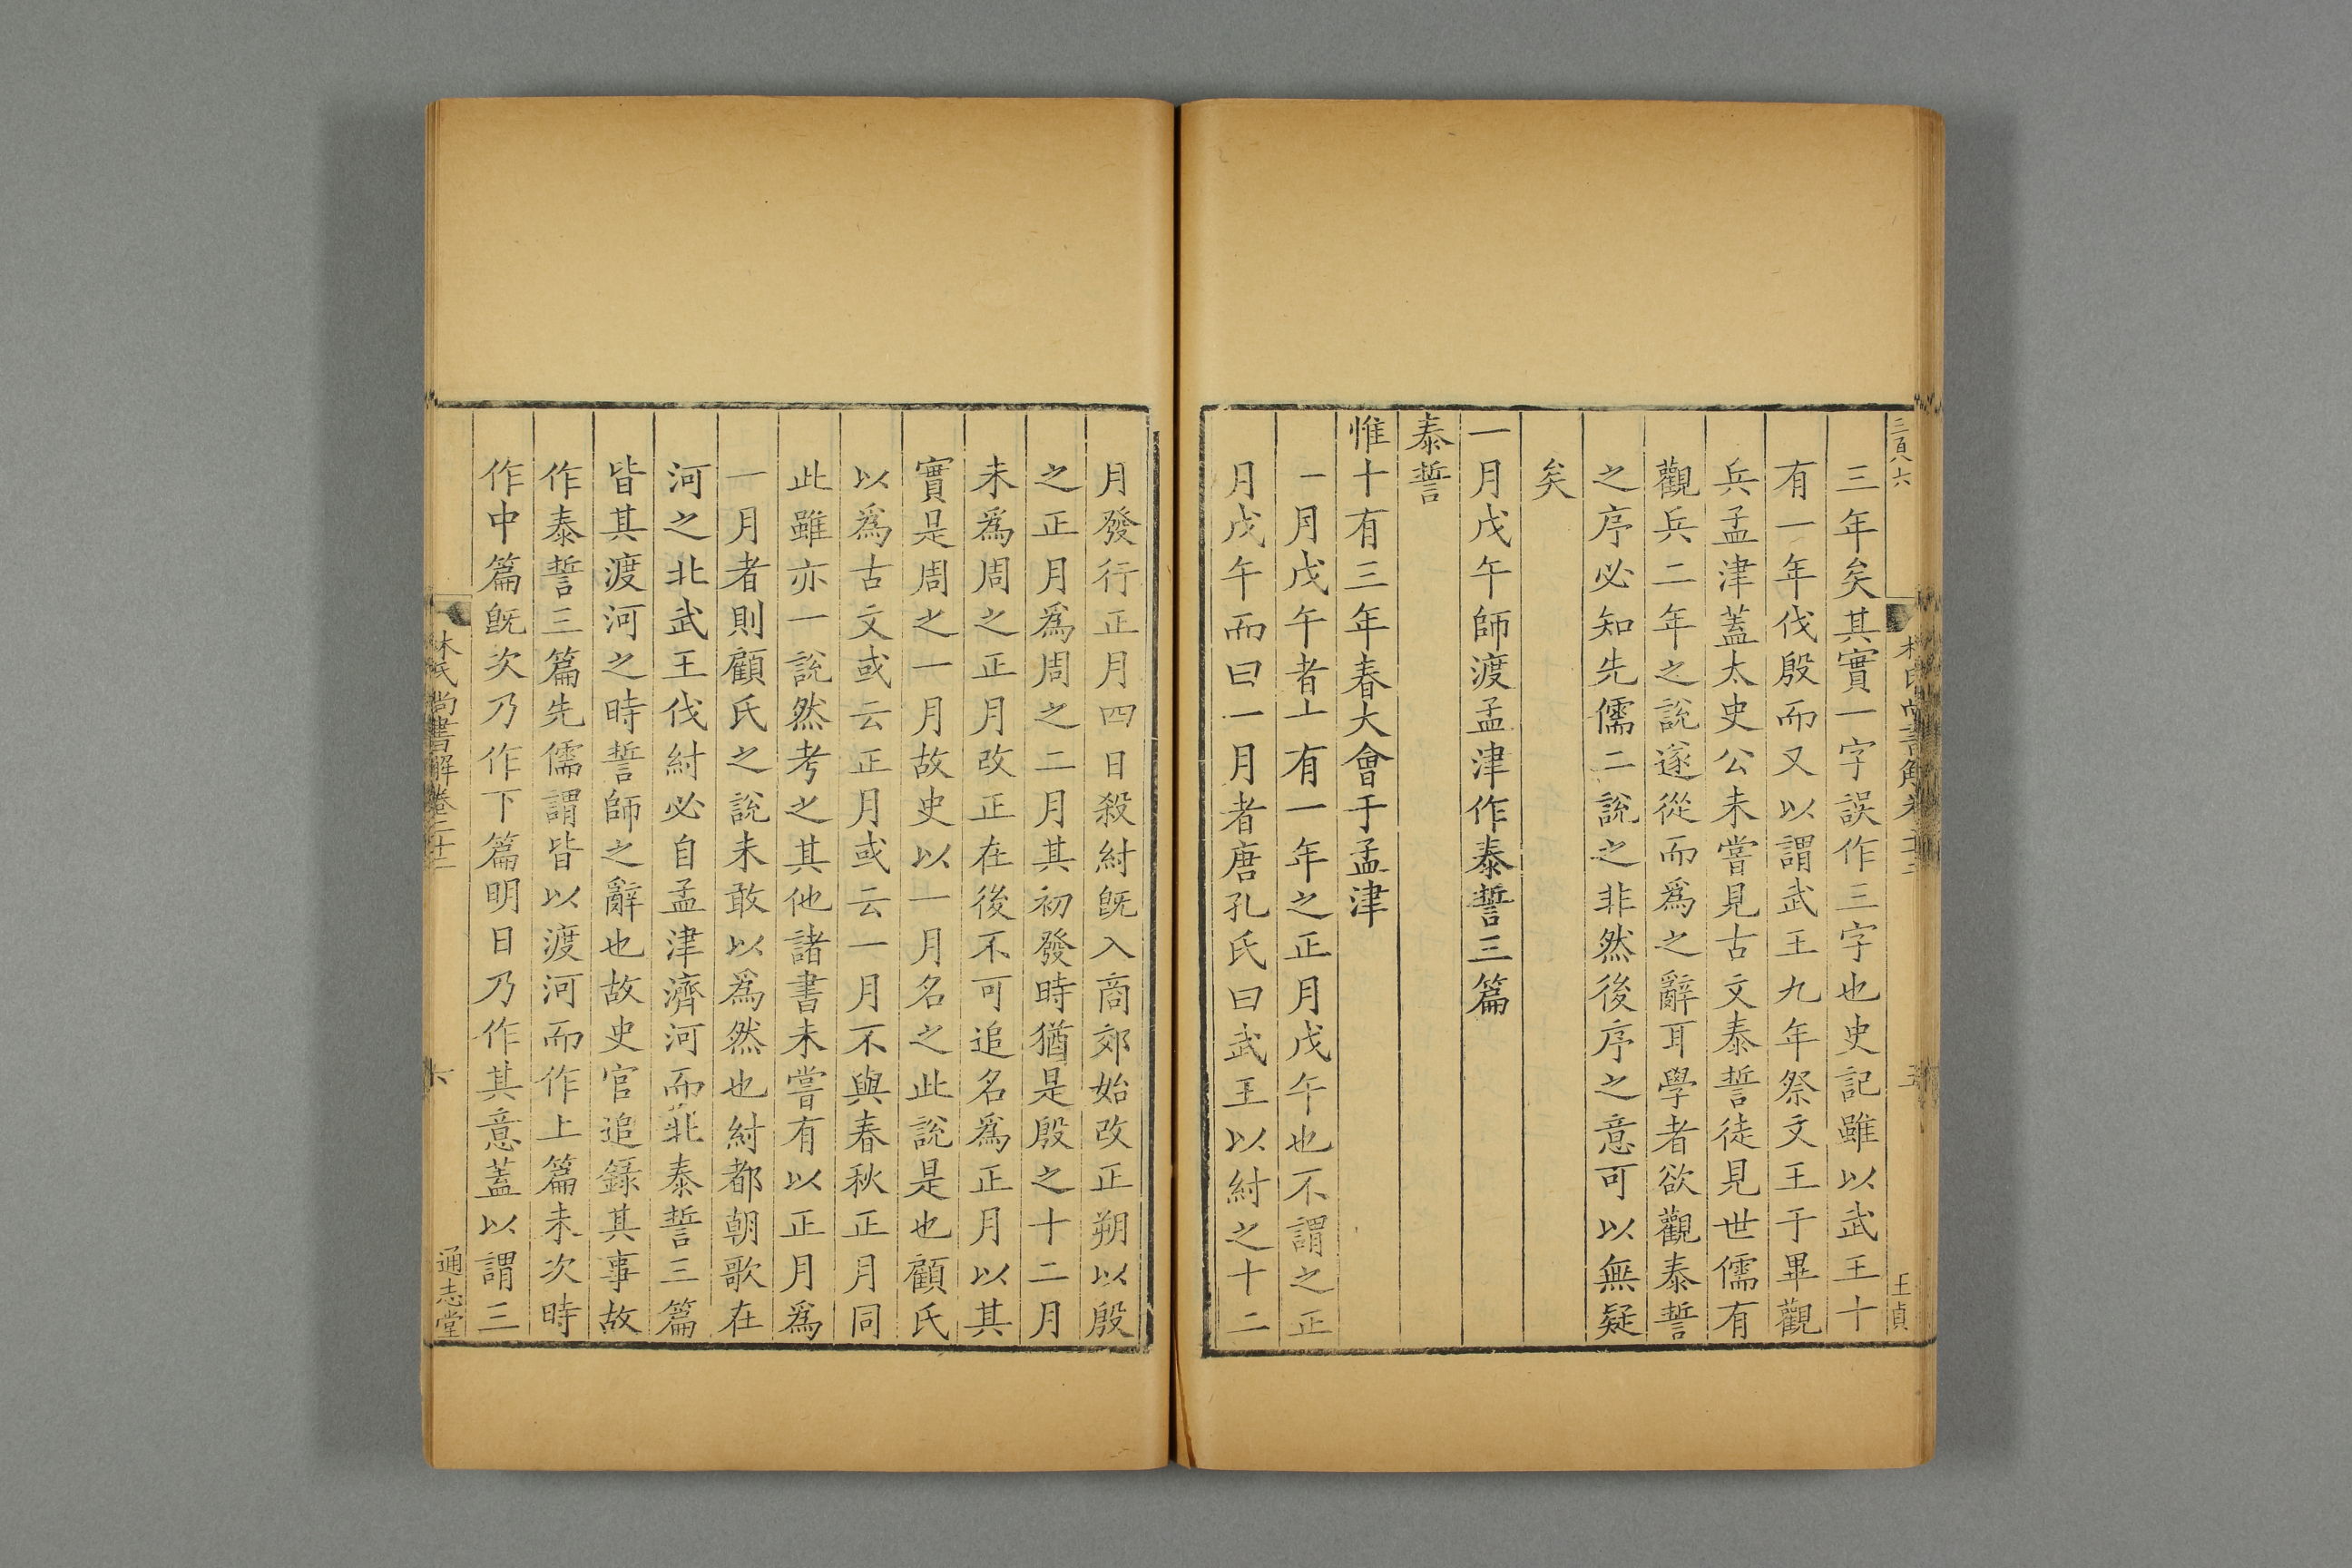 三百八六
三年矣其實一字誤作三字也史記雖以武王十
有一年伐殷而又以謂武王九年祭文王于畢觀
兵孟津蓋太史公未嘗見古文泰誓徒見世儒有
觀兵二年之說遂從而爲之辭耳學者欲觀泰誓
之序必知先儒二說之非然後序之意可以無疑
矣
一月戊午師渡孟津作泰誓三篇
泰誓
惟十有三年春大會于孟津
一月戊午者上有一年之正月戊午也不謂之正
月戊午而曰一月者唐孔氏曰武王以紂之十二
王貞
月發行正月四日殺紂旣入商郊始改正朔以殷
之正月爲周之二月其初發時猶是殷之十二月
未爲周之正月改正在後不可追名爲正月以其
實是周之一月故史以一月名之此說是也顧氏
以爲古文或云正月或云一月不與春秋正月同
此雖亦一說然考之其他諸書未嘗有以正月爲
一月者則顧氏之說未敢以爲然也紂都朝歌在
河之北武王伐紂必自孟津濟河而北泰誓三篇
皆其渡河之時誓師之辭也故史官追錄其事故
作泰誓三篇先儒謂皆以渡河而作上篇未次時
作中篇旣次乃作下篇明日乃作其意蓋以謂三
林氏尚書解卷二十二
六
通志堂